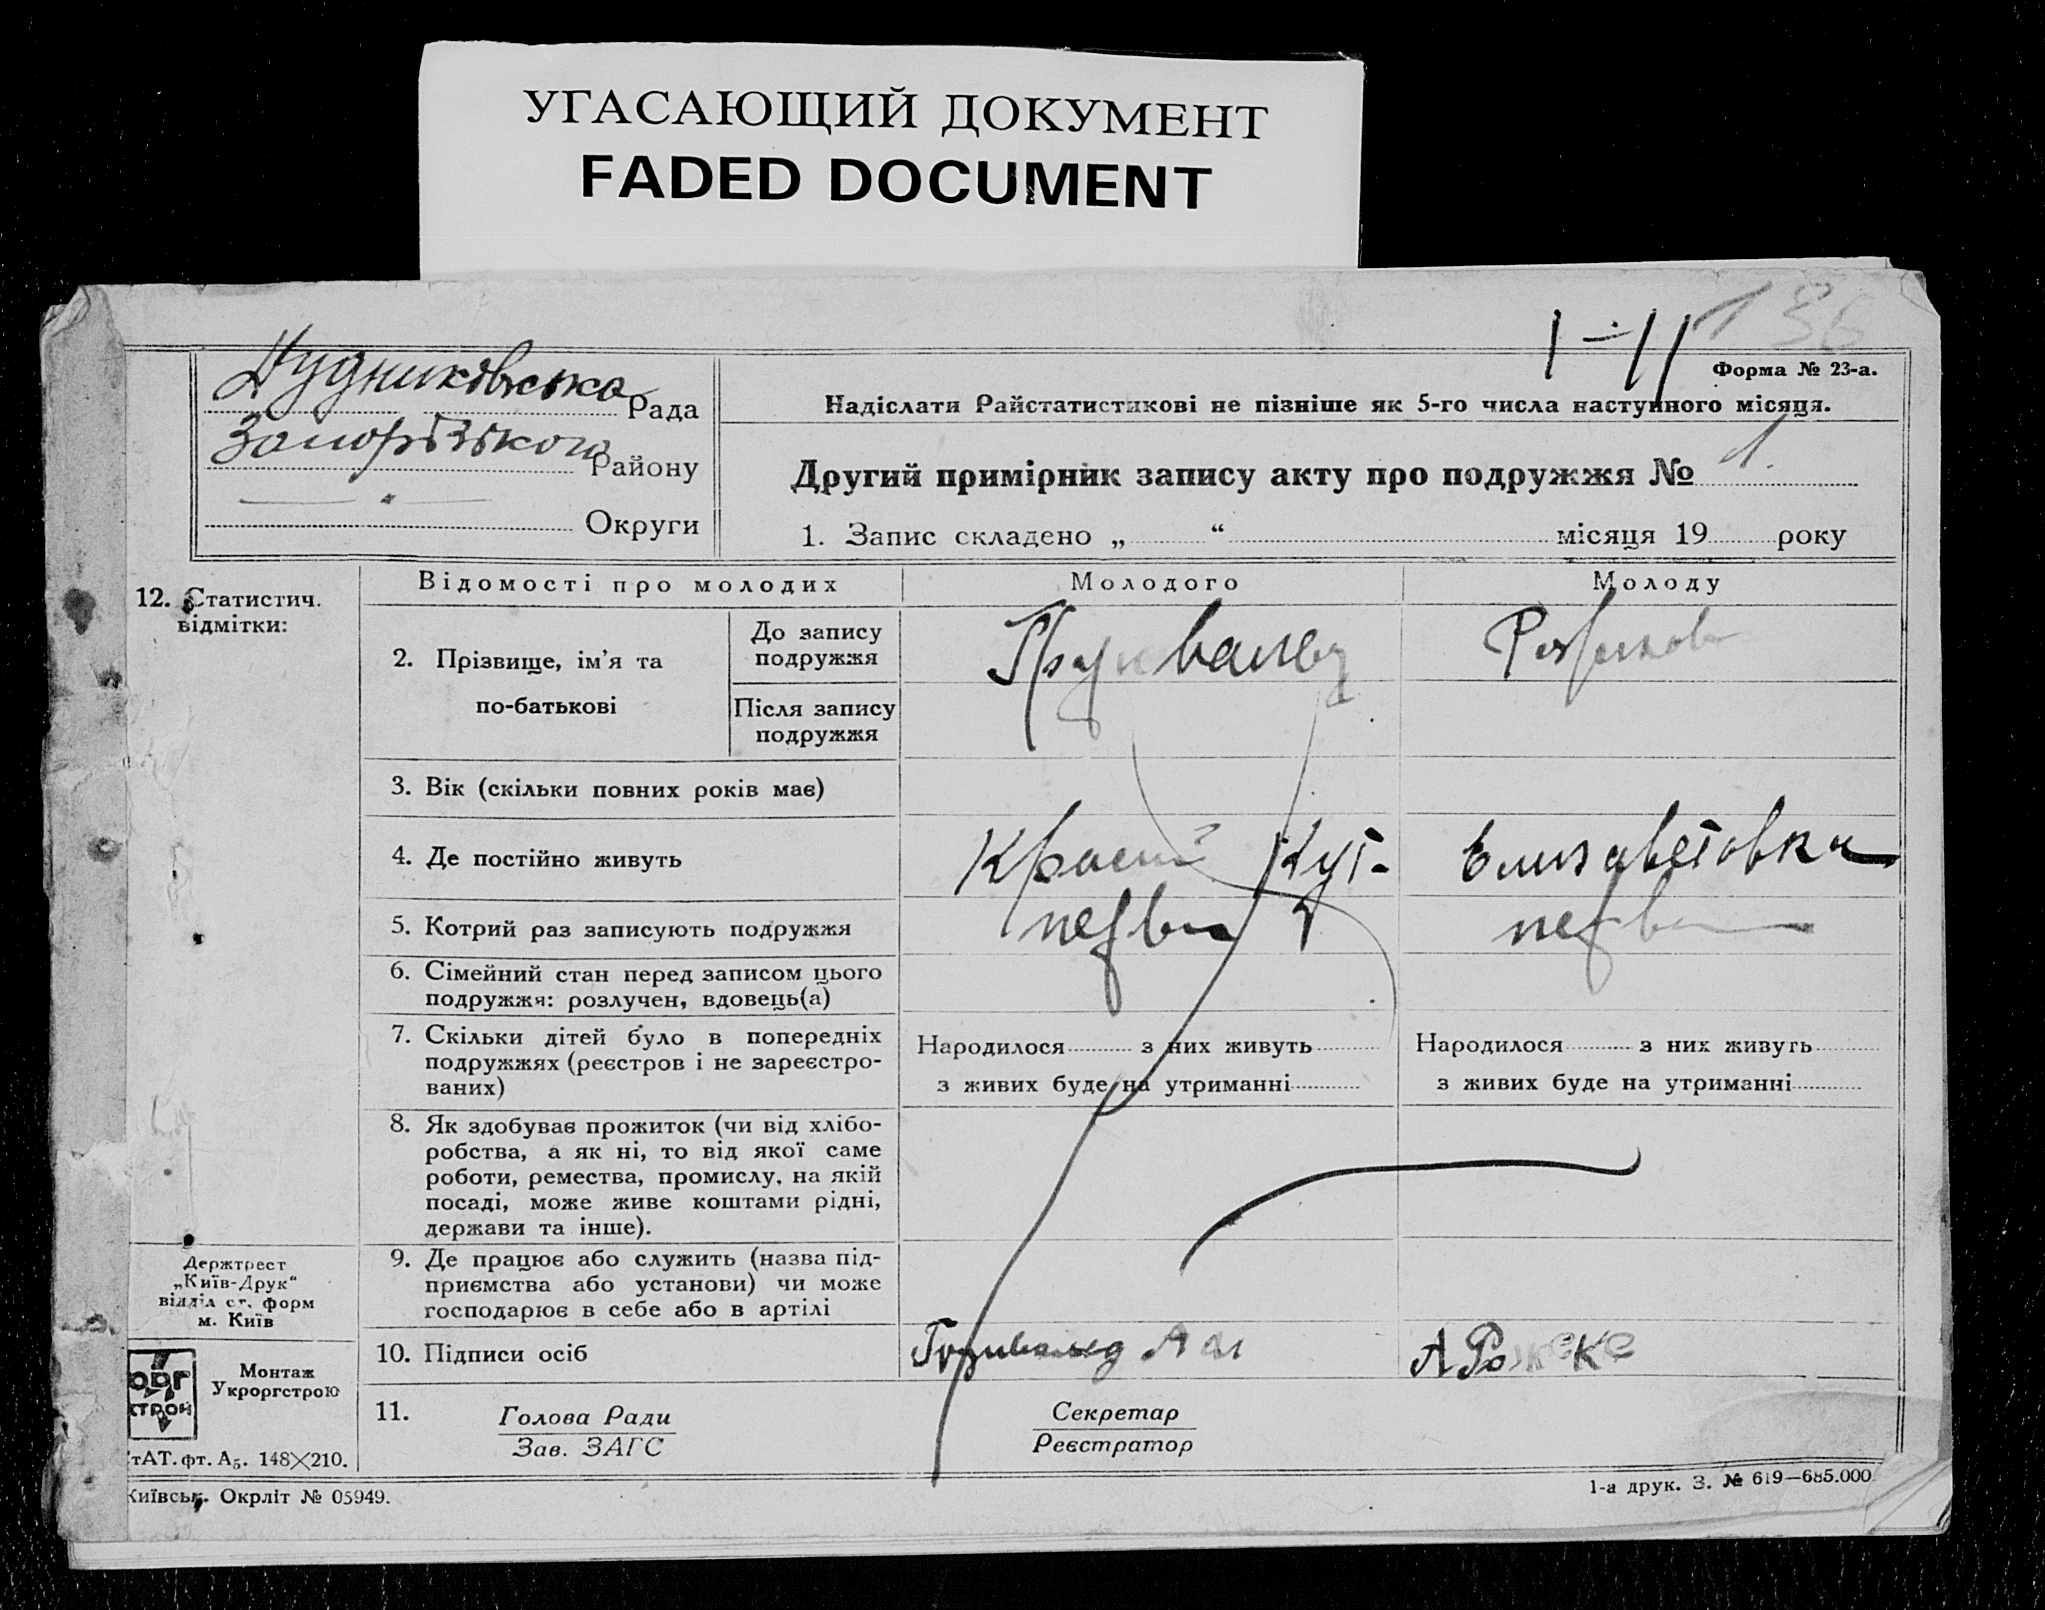 УГАСАЮЩИЙ ДОКУМЕНТ
FADED DOCUMENT
1-11 136
Форма № 23-а.
Дудниковська Рада
Запорізького Району
— " — Округи
Надіслати Райстатистикові не пізніше як 5-го числа наступного місяця.
Другий примірник запису акту про подружжя № 1.
1. Запис складено „ “ місяця 19 року
12. Статистич. відмітки:
Відомості про молодих
Молодого
Молоду
2. Прізвище, ім’я та по-батькові
До запису подружжя
Після запису подружжя
3. Вік (скільки повних років має)
4. Де постійно живуть
Кут
Елизаветовка
5. Котрий раз записують подружжя
перви
перв
6. Сімейний стан перед записом цього подружжя: розлучен, вдовець(а)
7. Скільки дітей було в попередніх подружжях (реєстров і не зареєстро-
ваних)
Народилося з них живуть
з живих буде на утриманні
Народилося з них живуть
з живих буде на утриманні
8. Як здобуває прожиток (чи від хлібо-
робства, а як ні, то від якої саме
роботи, ремества, промислу, на якій
посаді, може живе коштами рідні,
держави та інше).
9. Де працює або служить (назва під-
приємства або установи) чи може
господарює в себе або в артілі
10. Підписи осіб
11. Голова Ради
Зав. ЗАГС
Секретар
Реєстратор
Держтрест
„Київ-Друк“
відділ ст. форм
м. Київ
ОРГ
СТРОЙ
Монтаж
Укроргстрою
тАТ. фт. А₅. 148×210.
Київськ. Окрліт № 05949.
1-а друк. З. № 619—685.000